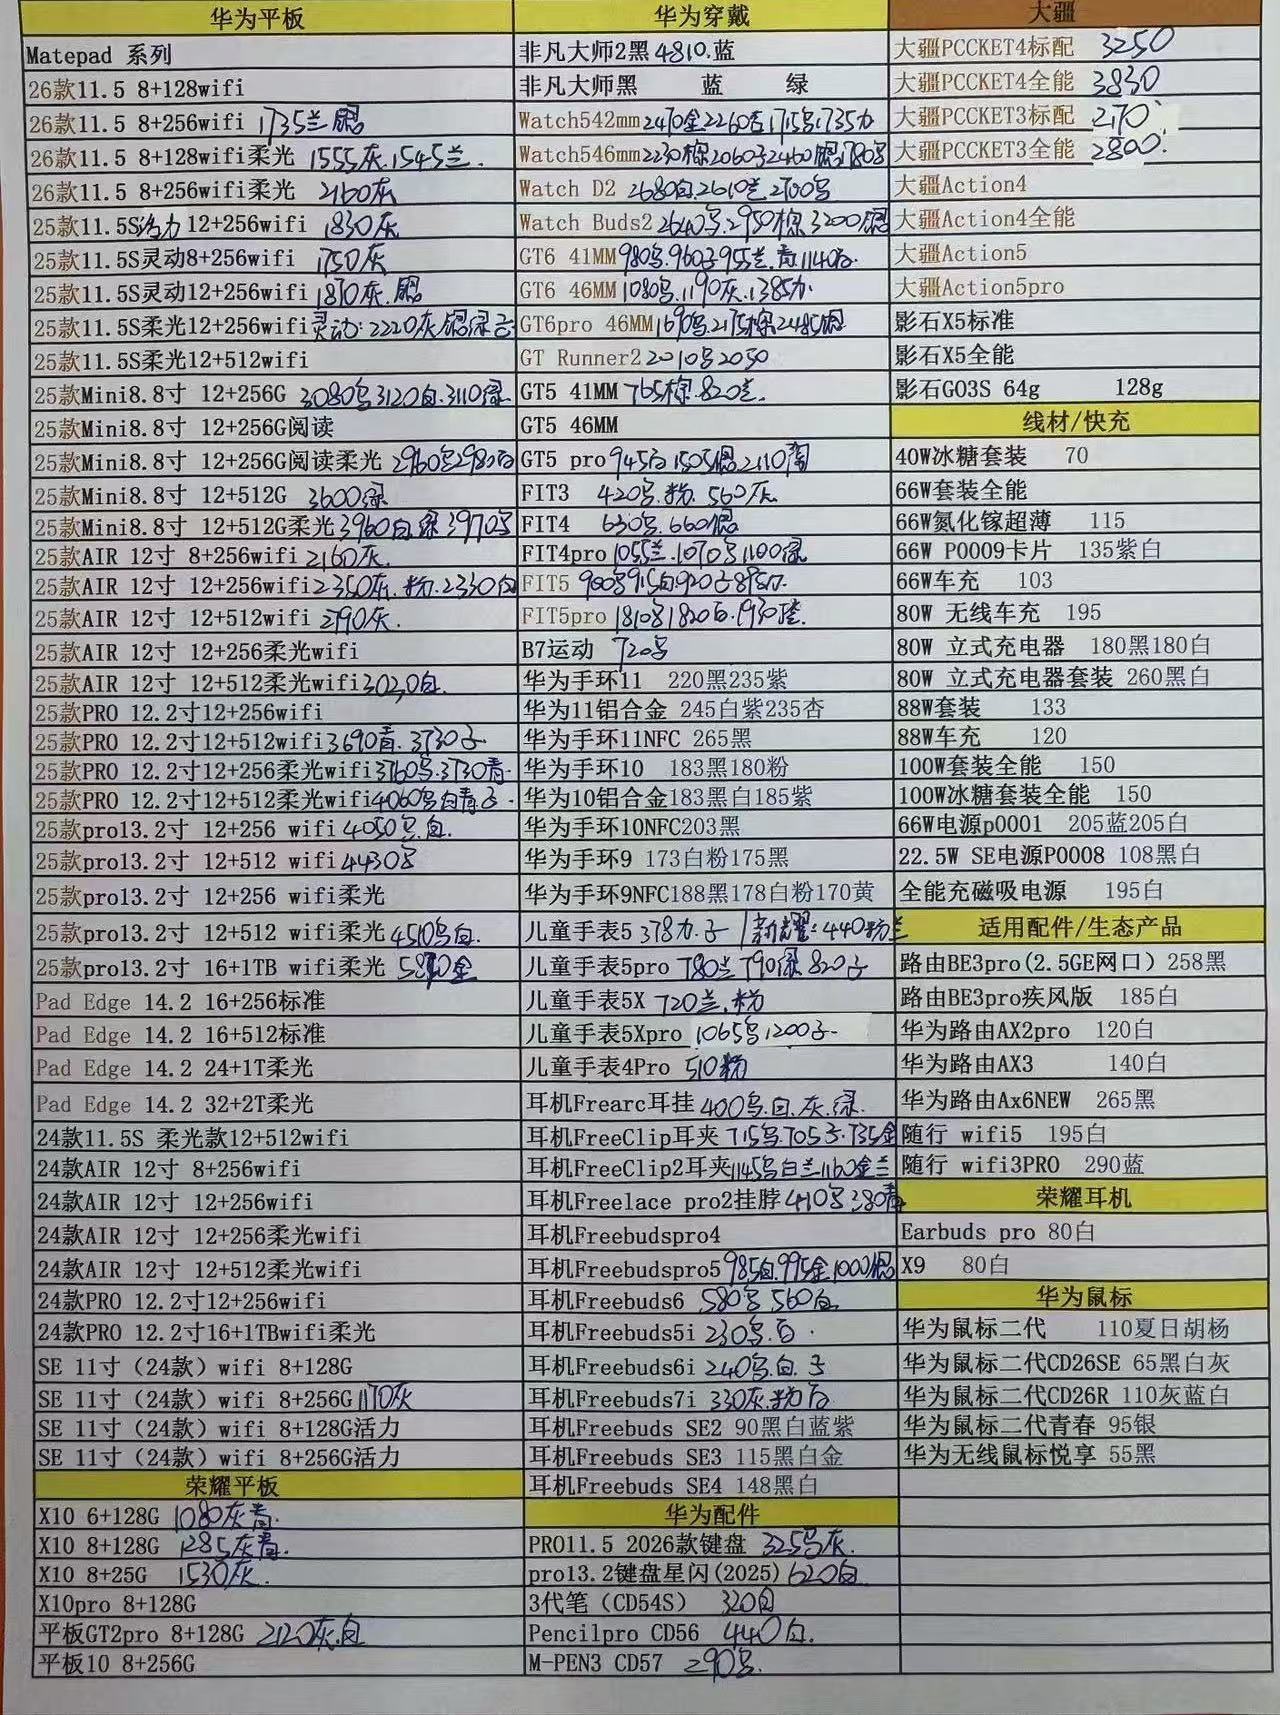 华为平板
Matepad 系列
26款11.5 8+128wifi
26款11.5 8+256wifi 1735兰.银
26款11.5 8+128wifi柔光 1555灰.1545兰.
26款11.5 8+256wifi柔光 2160灰
25款11.5S活力 12+256wifi 1830灰
25款11.5S灵动8+256wifi 1750灰
25款11.5S灵动12+256wifi 1870灰.银
25款11.5S柔光12+256wifi灵动:2220灰银绿子
25款11.5S柔光12+512wifi
25款Mini8.8寸 12+256G 3080乌3120白.3110绿
25款Mini8.8寸 12+256G阅读
25款Mini8.8寸 12+256G阅读柔光 2960乌2980白
25款Mini8.8寸 12+512G 3600绿
25款Mini8.8寸 12+512G柔光3960白.绿3970乌
25款AIR 12寸 8+256wifi 2160灰.
25款AIR 12寸 12+256wifi2350灰.粉.2330白
25款AIR 12寸 12+512wifi 2790灰.
25款AIR 12寸 12+256柔光wifi
25款AIR 12寸 12+512柔光wifi3020白.
25款PRO 12.2寸12+256wifi
25款PRO 12.2寸12+512wifi3690青.3730子
25款PRO 12.2寸12+256柔光wifi3760乌.3730青.
25款PRO 12.2寸12+512柔光wifi4060乌白青子.
25款pro13.2寸 12+256 wifi 4050乌.白.
25款pro13.2寸 12+512 wifi 4430乌
25款pro13.2寸 12+256 wifi柔光
25款pro13.2寸 12+512 wifi 柔光4510乌白.
25款pro13.2寸 16+1TB wifi柔光 金
Pad Edge 14.2 16+256标准
Pad Edge 14.2 16+512标准
Pad Edge 14.2 24+1T柔光
Pad Edge 14.2 32+2T柔光
24款11.5S 柔光款12+512wifi
24款AIR 12寸 8+256wifi
24款AIR 12寸 12+256wifi
24款AIR 12寸 12+256柔光wifi
24款AIR 12寸 12+512柔光wifi
24款PRO 12.2寸12+256wifi
24款PRO 12.2寸16+1TBwifi柔光
SE 11寸（24款）wifi 8+128G
SE 11寸（24款）wifi 8+256G 1170灰
SE 11寸（24款）wifi 8+128G活力
SE 11寸（24款）wifi 8+256G活力
荣耀平板
X10 6+128G 1080灰青.
X10 8+128G 1285灰青.
X10 8+25G 1530灰.
X10pro 8+128G
平板GT2pro 8+128G 2120灰.白
平板10 8+256G
华为穿戴
非凡大师2黑4810.蓝
非凡大师黑 蓝 绿
Watch542mm2470金2260杏1715乌1735力
Watch546mm2230棕2060子2460银1780乌
Watch D2 2680白.2610兰2700乌
Watch Buds2 2640乌.2950棕3200银
GT6 41MM980乌.960子955兰.青1140白.
GT6 46MM1080乌.1190灰.1385力.
GT6pro 46MM1690乌.2175棕2485银
GT Runner2 2010乌2050
GT5 41MM 765棕.820兰.
GT5 46MM
GT5 pro 945白1505银2110陶
FIT3 420乌.粉.560灰
FIT4 630乌.660银
FIT4pro 1055兰.1070乌1100绿
FIT5 900乌915白920子
FIT5pro 1810乌1820白.1930
B7运动 720乌
华为手环11 220黑235紫
华为11铝合金 245白紫235杏
华为手环11NFC 265黑
华为手环10 183黑180粉
华为10铝合金183黑白185紫
华为手环10NFC203黑
华为手环9 173白粉175黑
华为手环9NFC188黑178白粉170黄
儿童手表5 378力.子 新耀:440粉兰
儿童手表5pro 780兰790绿820子
儿童手表5X 720兰.粉
儿童手表5Xpro 1065乌1200子.
儿童手表4Pro 510粉
耳机Frearc耳挂 400乌.白.灰.绿.
耳机FreeClip耳夹 715乌.705子.735金
耳机FreeClip2耳夹1145乌白兰1160金兰
耳机Freelace pro2挂脖410乌380青
耳机Freebudspro4
耳机Freebudspro5 985白.995金1000银
耳机Freebuds6 580乌 560白
耳机Freebuds5i 230乌.白.
耳机Freebuds6i 240乌.白.子
耳机Freebuds7i 330灰.粉白
耳机Freebuds SE2 90黑白蓝紫
耳机Freebuds SE3 115黑白金
耳机Freebuds SE4 148黑白
华为配件
PRO11.5 2026款键盘 325乌灰.
pro13.2键盘星闪(2025) 620白
3代笔（CD54S） 320白
Pencilpro CD56 440白.
M-PEN3 CD57 290乌.
大疆
大疆PCCKET4标配 3250
大疆PCCKET4全能 3830
大疆PCCKET3标配 2170
大疆PCCKET3全能 2800.
大疆Action4
大疆Action4全能
大疆Action5
大疆Action5pro
影石X5标准
影石X5全能
影石GO3S 64g 128g
线材/快充
40W冰糖套装 70
66W套装全能
66W氮化镓超薄 115
66W P0009卡片 135紫白
66W车充 103
80W 无线车充 195
80W 立式充电器 180黑180白
80W 立式充电器套装 260黑白
88W套装 133
88W车充 120
100W套装全能 150
100W冰糖套装全能 150
66W电源p0001 205蓝205白
22.5W SE电源P0008 108黑白
全能充磁吸电源 195白
适用配件/生态产品
路由BE3pro(2.5GE网口）258黑
路由BE3pro疾风版 185白
华为路由AX2pro 120白
华为路由AX3 140白
华为路由Ax6NEW 265黑
随行 wifi5 195白
随行 wifi3PRO 290蓝
荣耀耳机
Earbuds pro 80白
X9 80白
华为鼠标
华为鼠标二代 110夏日胡杨
华为鼠标二代CD26SE 65黑白灰
华为鼠标二代CD26R 110灰蓝白
华为鼠标二代青春 95银
华为无线鼠标悦享 55黑